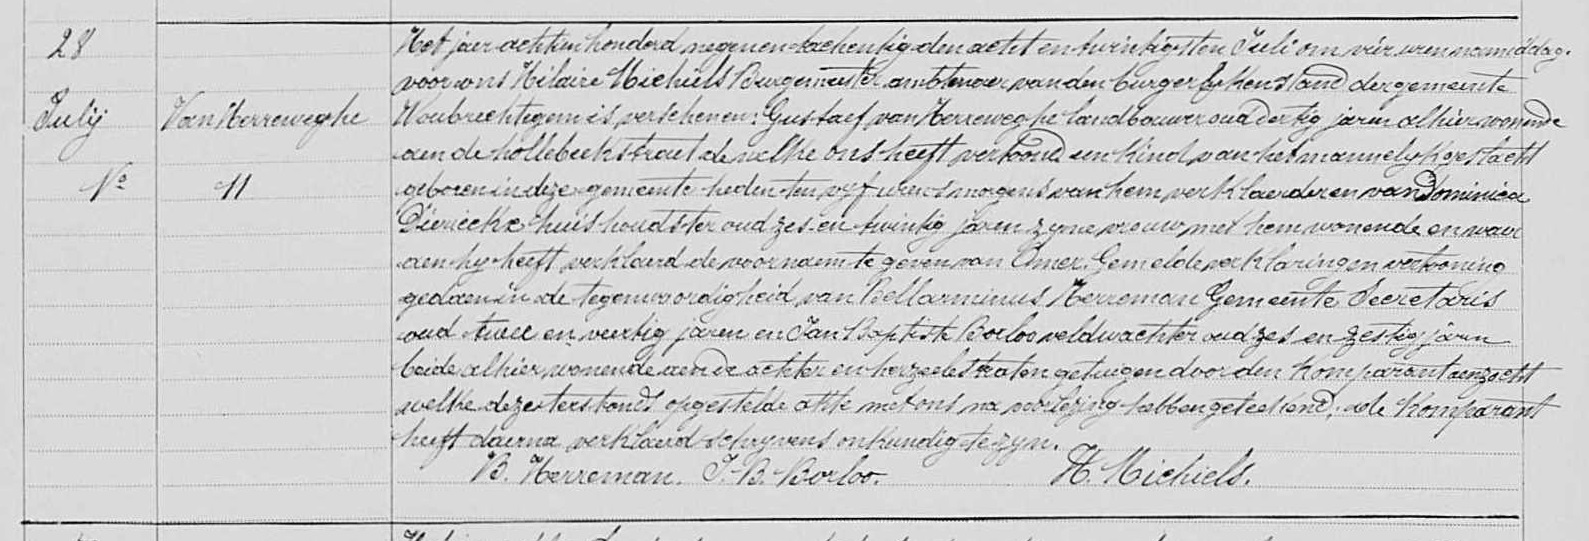 28
Julij
No
Van Herreweghe
11
Het jaer achttien honderd negen en tachentig den acht en twintigsten Juli om vier uren namiddag.
voor ons Hilaire Michiels Burgemeester ambtenaer van den burgerlyken stand der gemeente
Woubrechtegem is verschenen: Gustaef van Herreweghe landbouwer oud dertig jaren alhier wonende
aen de hollebeekstraet de welke ons heeft vertoond een kind van het mannelyk geslacht
geboren in deze gemeente heden ten vyf uren smorgens van hem verklaerder en van Dominica
Dierickx huishoudster oud zes en twintig jaren zyne vrouw met hem wonende en waer
aen hy heeft verklaerd de voornaem te geven van Omer. Gemelde verklaring en vertooning
gedaen in de tegenwoordigheid van Bellarminus Herreman Gemeente Secretaris
oud twee en veertig jaren en Jan Baptiste Borloo veldwachter oud zes en zestig jaren
beide alhier wonende aen de achter en herzeelestraten getuigen door den komparant aenzocht
welke deze terstond opgestelde akte met ons na voorlezing hebben geteekend, de komparant
heeft daerna verklaerd schryvens onkundig te zyn.
B. Herreman. J. B. Borloo. H. Michiels.